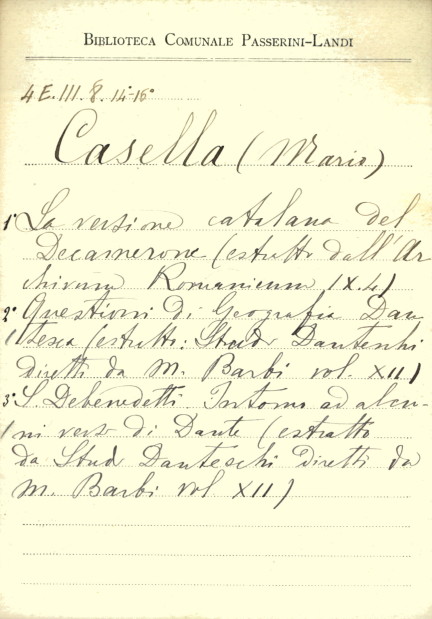 BIBLIOTECA COMUNALE PASSERINI-LANDI
4 E. III. 8. 14°-16°
Casella (Mario)
1° La versione catalana del
Decamerone (estratto dall'Ar
chivum Romanicum IX.4)
2° Questioni di Geografia Dan
tesca (estratto: Studi Danteschi
diretti da M. Barbi vol. XII)
3° S. Debenedetti. Intorno ad alcu-
ni versi di Dante (estratto
da Studi Danteschi diretti da
M. Barbi vol. XII)